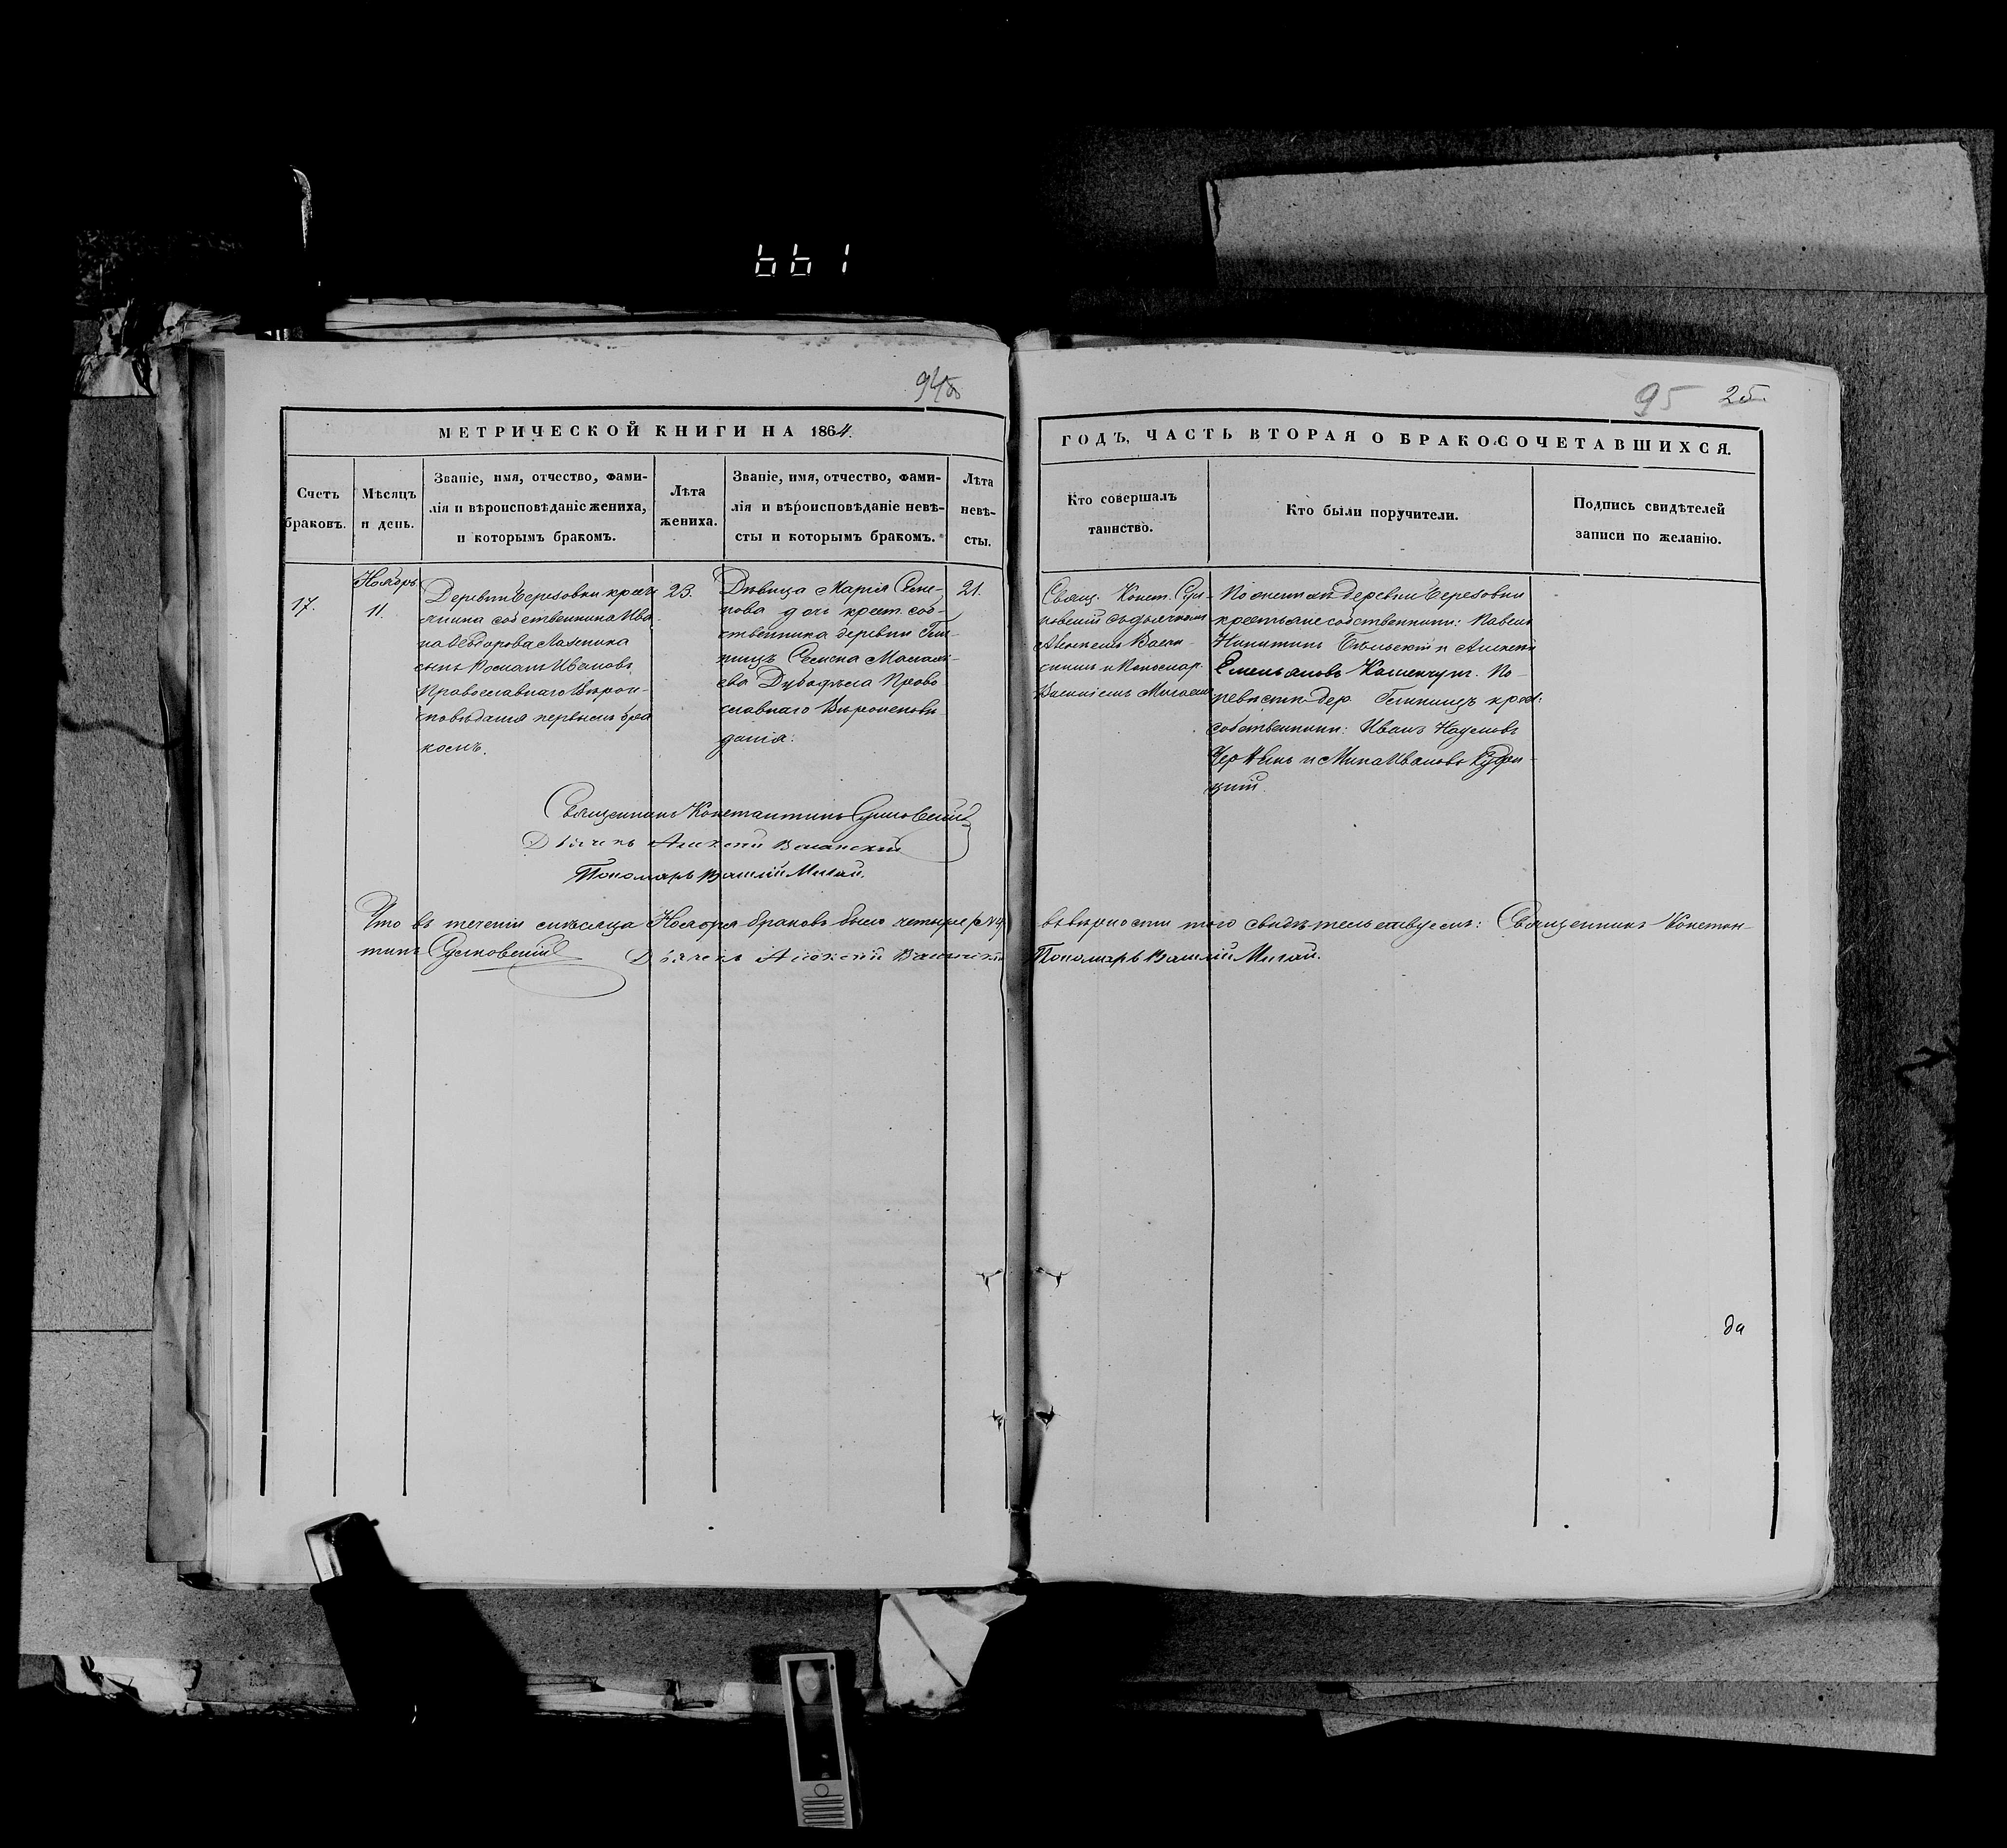 661
94об
95 25
МЕТРИЧЕСКОЙ КНИГИ НА 1864.
ГОДЪ, ЧАСТЬ ВТОРАЯ О БРАКОСОЧЕТАВШИХСЯ.
Счетъ браковъ.
Мѣсяцъ и день.
Званіе, имя, отчество, фами-
лія и вѣроисповѣданіе жениха,
и которымъ бракомъ.
Лѣта жениха.
Званіе, имя, отчество, фами-
лія и вѣроисповѣданіе невѣ-
сты и которымъ бракомъ.
Лѣта невѣ-
сты.
Кто совершалъ
таинство.
Кто были поручители.
Подпись свидѣтелей
записи по желанію.
17.
Ноябрь
11.
Деревни Березовки крестъ
янина собственника Ива
на Ѳеодорова
сынъ Романъ Ивановъ
Православнаго Вѣрои-
сповѣданія первымъ бра
комъ.
23.
Дѣвица Марія Семе-
нова дочь крест. соб-
ственника деревни Гли-
ницъ Семена
ева Право
славнаго Вѣроисповѣ
данія.
21.
Свящ. Конст. Сул-
ковскій съ дьячкомъ
Алексѣемъ
и Пономар.
Василіемъ Мигаемъ
По женихѣ деревни Березовки
крестьяне собственники: Павелъ
Никитинъ Бѣльскій и Алексѣй
Емельяновъ По
невѣстѣ дер. Глиницъ крес.
собственники: Иванъ Наумовъ
и Мина Ивановъ
Священникъ Константинъ Сулковскій
Дьячекъ Алексѣй
Пономарь Василій Мигай.
Что въ теченіи мѣсяца Ноября браковъ было четыре № 4
въ вѣрности того свидѣтельствуемъ: Священникъ Констан-
тинъ Сулковскій Дьячекъ Алексѣй
Пономарь Василій Мигай.
да